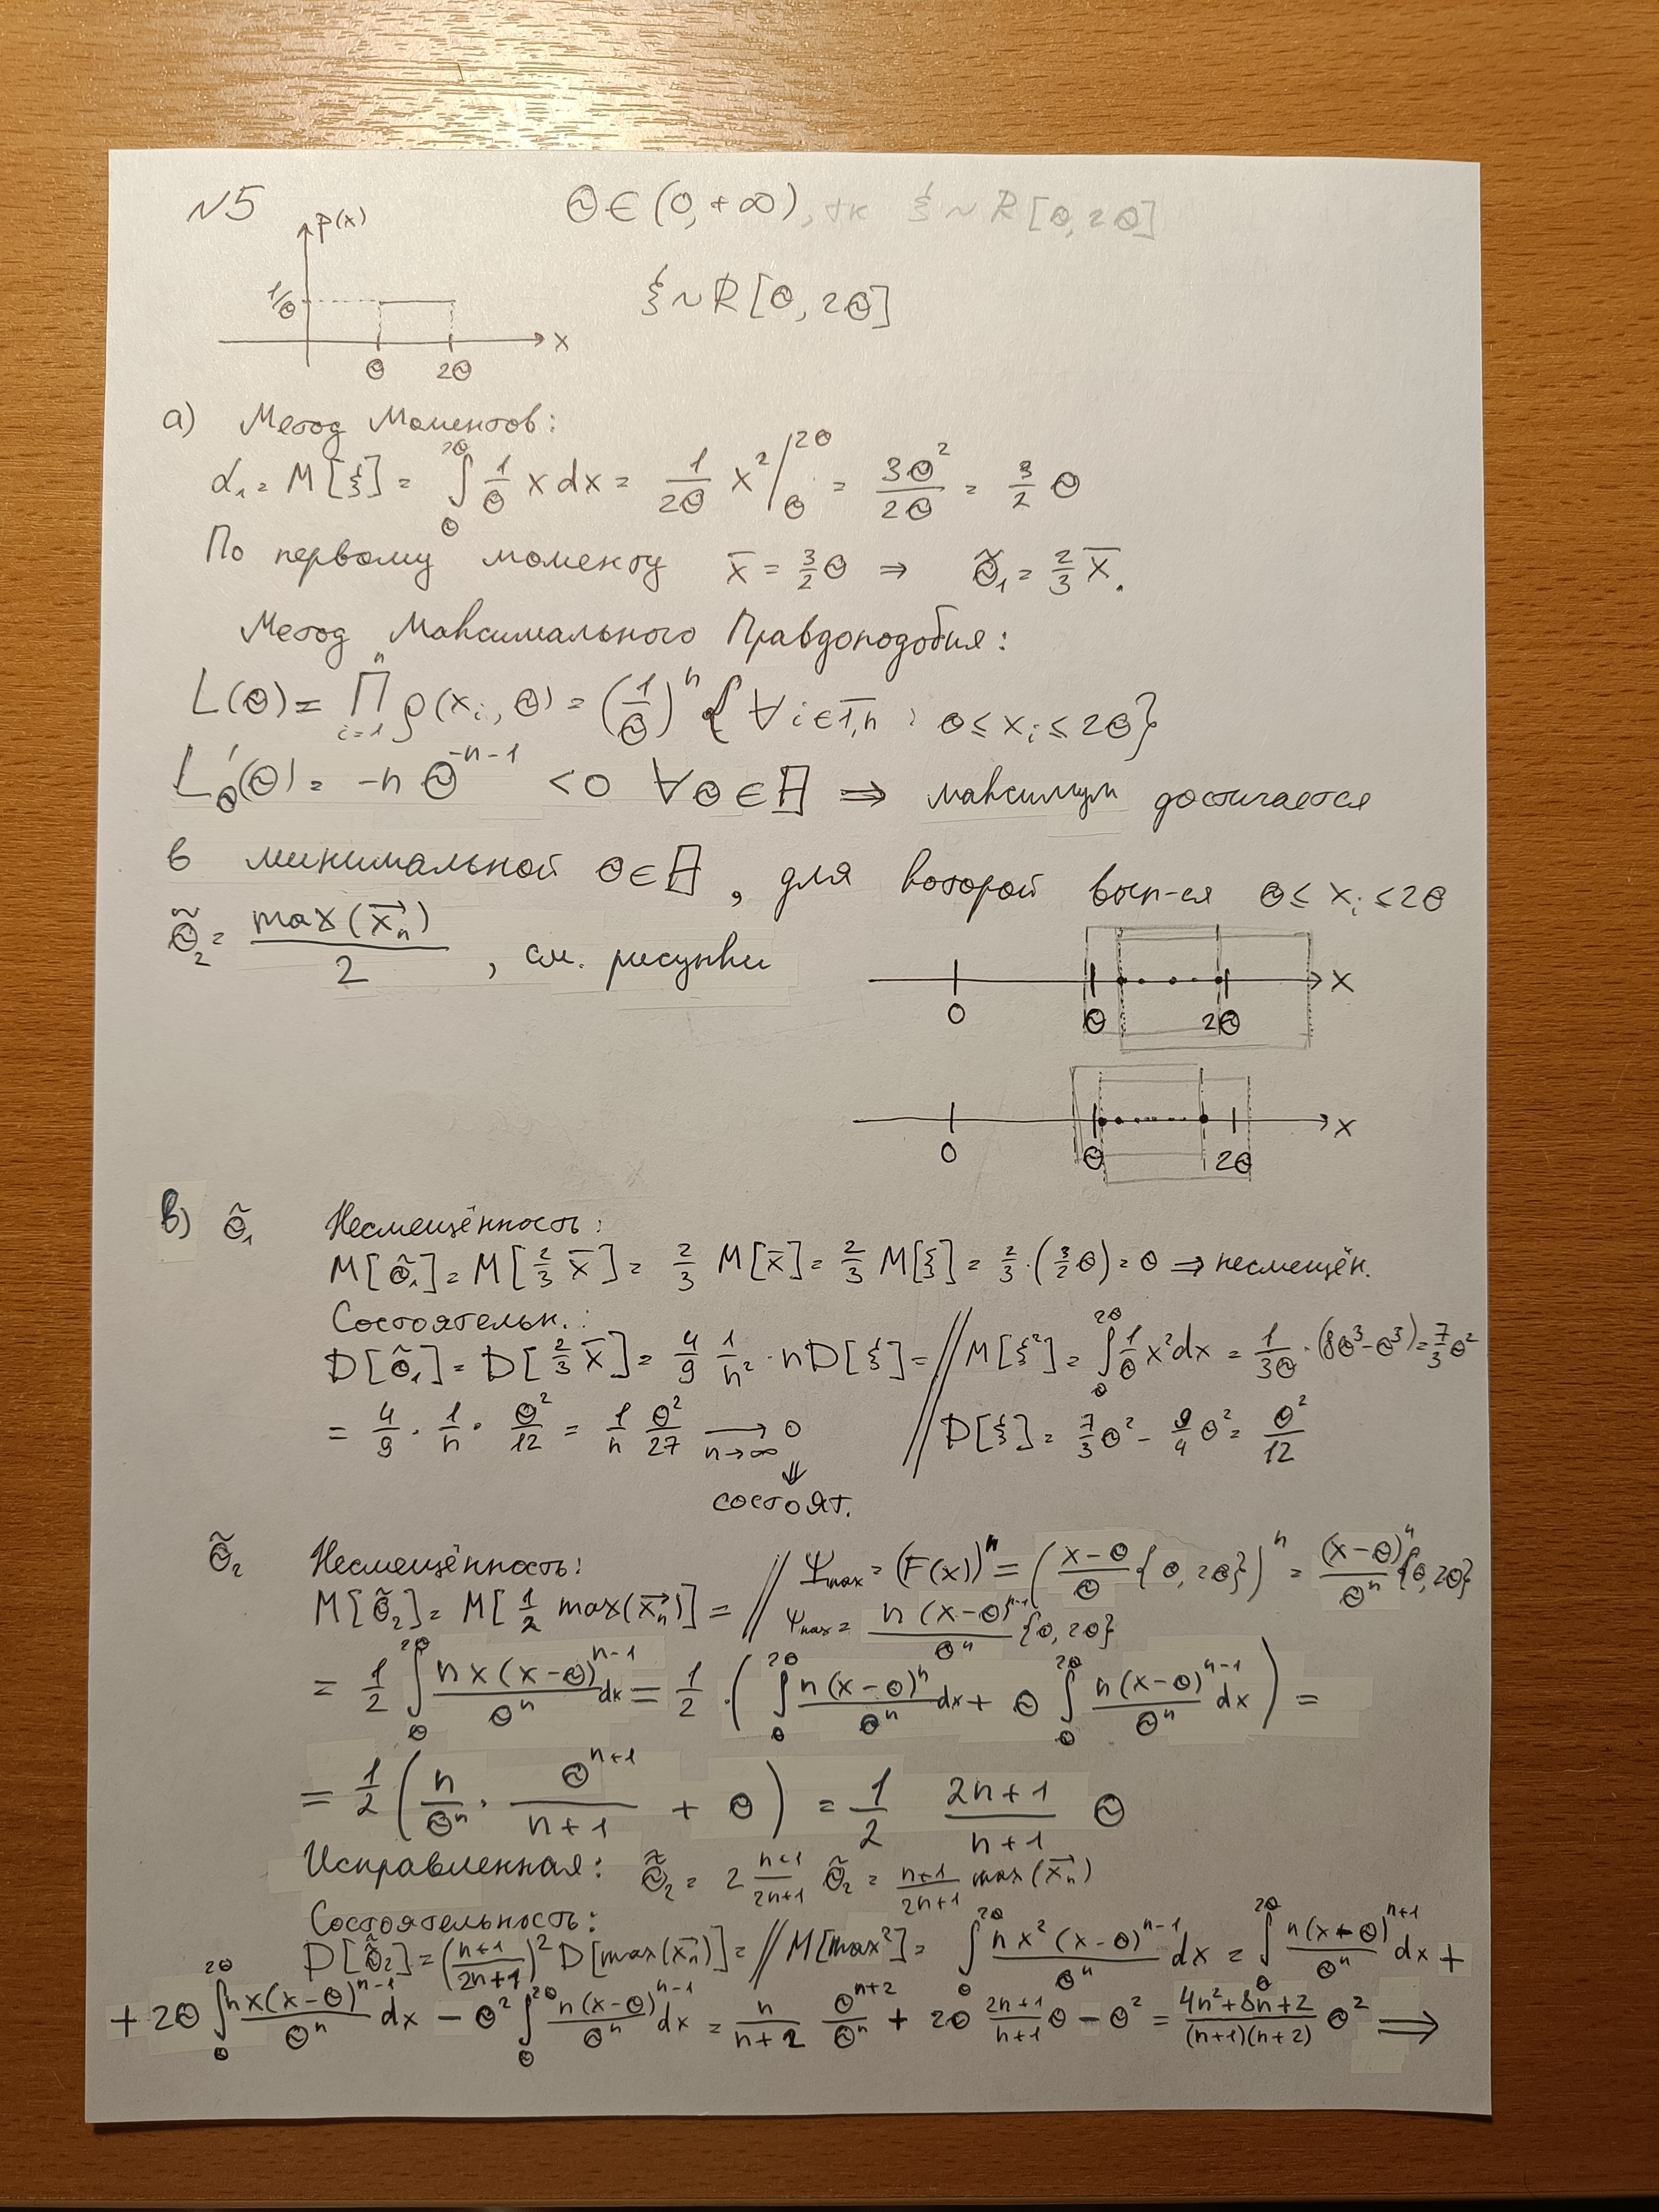 №5 Θ∈(0,+∞), тк ξ ~ R[Θ, 2Θ]
p(x)
1/Θ
Θ 2Θ x
ξ ~ R[Θ, 2Θ]
а) Метод Моментов:
α₁ = M[ξ] = ∫_Θ^{2Θ} 1/Θ x dx = 1/(2Θ) x² |_Θ^{2Θ} = 3Θ²/(2Θ) = 3/2 Θ
По первому моменту x̄ = 3/2 Θ ⇒ Θ̃₁ = 2/3 x̄.
Метод Максимального Правдоподобия:
L(Θ) = ∏_{i=1}^n ρ(x_i, Θ) = (1/Θ)^n {∀ i∈1,n : Θ ≤ x_i ≤ 2Θ}
L'_Θ(Θ) = -n Θ^{-n-1} < 0 ∀Θ∈Θ ⇒ максимум достигается
в минимальной Θ∈Θ, для которой вып-ся Θ ≤ x_i ≤ 2Θ
Θ̃₂ = max(x⃗_n)/2, см. рисунки
0 Θ 2Θ x
0 Θ 2Θ x
в) Θ̃₁ Несмещённость:
M[Θ̃₁] = M[2/3 x̄] = 2/3 M[x̄] = 2/3 M[ξ] = 2/3·(3/2 Θ) = Θ ⇒ несмещён.
Состоятельн.:
D[Θ̃₁] = D[2/3 x̄] = 4/9 1/n² · nD[ξ] = // M[ξ²] = ∫_Θ^{2Θ} 1/Θ x² dx = 1/(3Θ) · (8Θ³-Θ³) = 7/3 Θ²
= 4/9 · 1/n · Θ²/12 = 1/n Θ²/27 →_{n→∞} 0 // D[ξ] = 7/3 Θ² - 9/4 Θ² = Θ²/12
⇓
состоят.
Θ̃₂ Несмещённость: // Ψ_max = (F(x))^n = ((x-Θ)/Θ {Θ, 2Θ})^n = (x-Θ)^n/Θ^n {Θ, 2Θ}
M[Θ̃₂] = M[1/2 max(x⃗_n)] = // ψ_max = n(x-Θ)^{n-1}/Θ^n {Θ, 2Θ}
= 1/2 ∫_Θ^{2Θ} nx(x-Θ)^{n-1}/Θ^n dx = 1/2 · (∫_Θ^{2Θ} n(x-Θ)^n/Θ^n dx + Θ ∫_Θ^{2Θ} n(x-Θ)^{n-1}/Θ^n dx) =
= 1/2 (n/Θ^n · Θ^{n+1}/(n+1) + Θ) = 1/2 (2n+1)/(n+1) Θ
Исправленная: Θ̃̃₂ = 2 (n+1)/(2n+1) Θ̃₂ = (n+1)/(2n+1) max(x⃗_n)
Состоятельность:
D[Θ̃̃₂] = ((n+1)/(2n+1))² D[max(x⃗_n)] = // M[max²] = ∫_Θ^{2Θ} nx²(x-Θ)^{n-1}/Θ^n dx = ∫_Θ^{2Θ} n(x-Θ)^{n+1}/Θ^n dx +
+ 2Θ ∫_Θ^{2Θ} nx(x-Θ)^{n-1}/Θ^n dx - Θ² ∫_Θ^{2Θ} n(x-Θ)^{n-1}/Θ^n dx = n/(n+2) Θ^{n+2}/Θ^n + 2Θ (2n+1)/(n+1) Θ - Θ² = (4n²+8n+2)/((n+1)(n+2)) Θ² ⇒